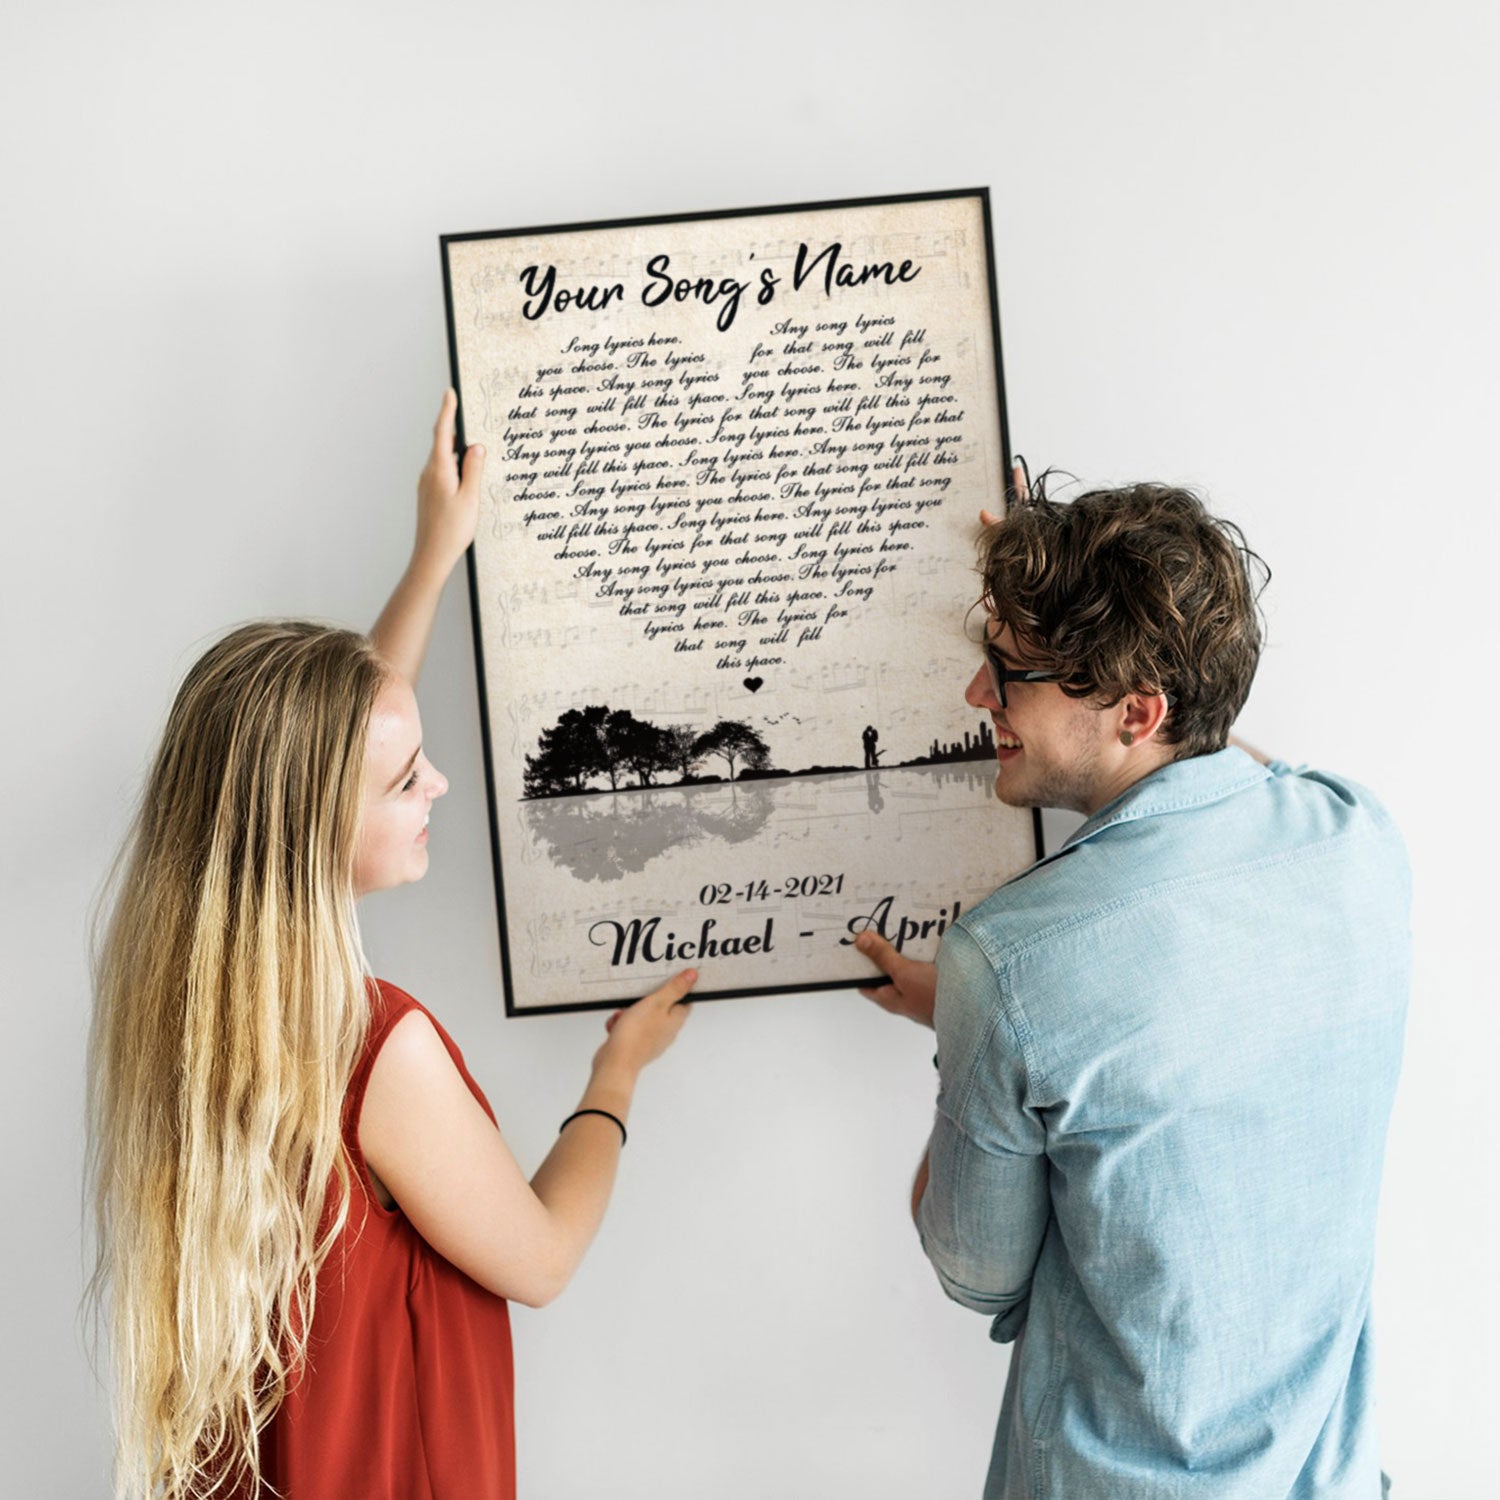 Your Song's Name
Song lyrics here. Any song lyrics
you choose. The lyrics for that song will fill
this space. Any song lyrics you choose. The lyrics for
that song will fill this space. Song lyrics here. Any song
lyrics you choose. The lyrics for that song will fill this space.
Any song lyrics you choose. Song lyrics here. The lyrics for that
song will fill this space. Song lyrics here. Any song lyrics you
choose. Song lyrics here. The lyrics for that song will fill this
space. Any song lyrics you choose. The lyrics for that song
will fill this space. Song lyrics here. Any song lyrics you
choose. The lyrics for that song will fill this space.
Any song lyrics you choose. Song lyrics here.
Any song lyrics you choose. The lyrics for
that song will fill this space. Song
lyrics here. The lyrics for
that song will fill
this space.
02-14-2021
Michael - April